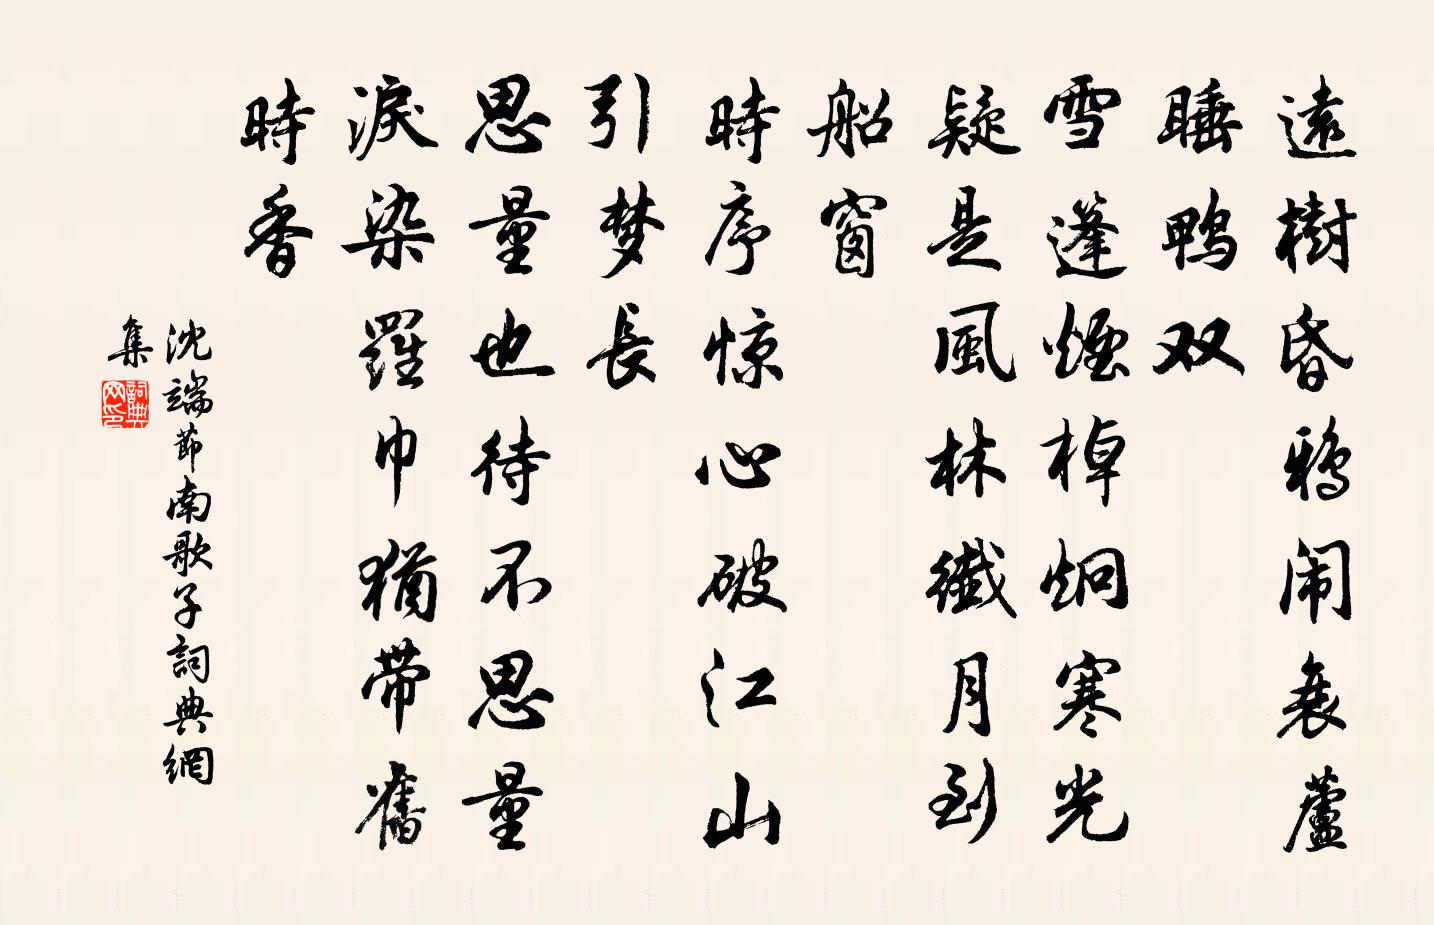 遠樹昏鴉闹衰蘆
睡鴨双
雪篷煙棹炯寒光
疑是風林纖月到
船窗
時序惊心破江山
引梦長
思量也待不思量
淚染羅巾猶带舊
時香
沈端節南歌子詞典網
集
詞典网印